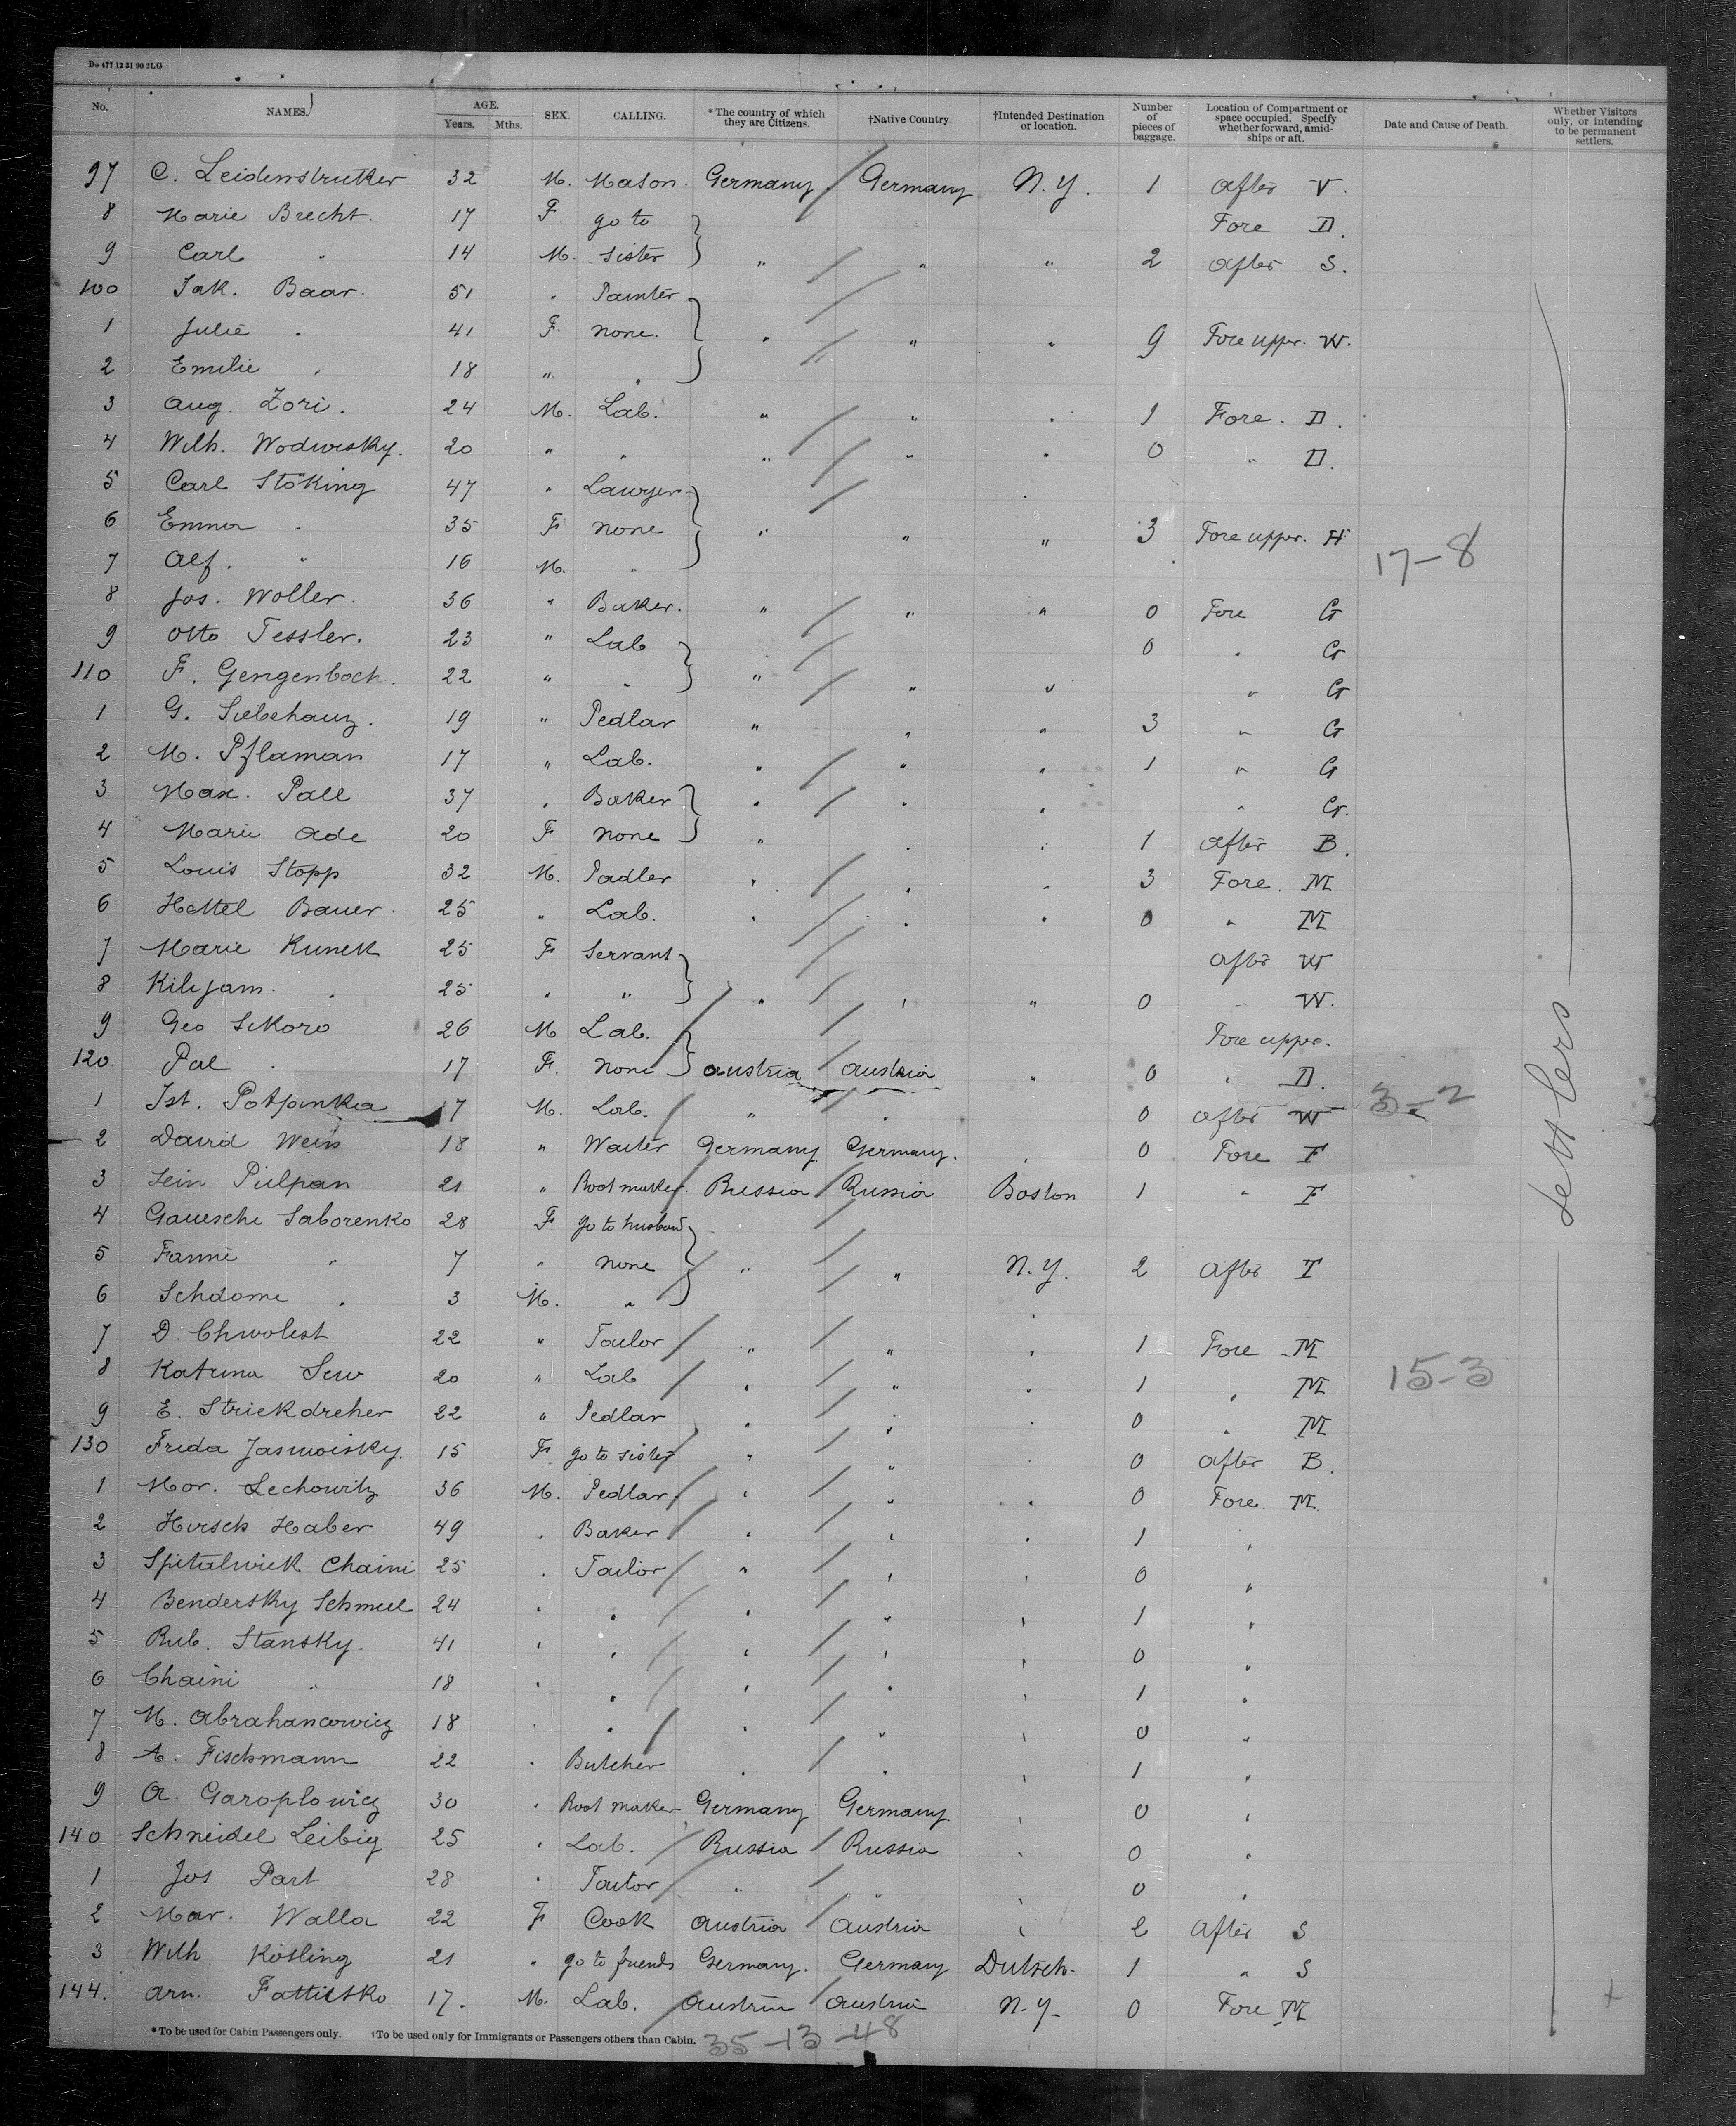 Do 477 12 31 90 2LG
No. NAMES. AGE. Years. Mths. SEX. CALLING. *The country of which they are Citizens. †Native Country. †Intended Destination or location. Number of pieces of baggage. Location of Compartment or space occupied. Specify whether forward, amidships or aft. Date and Cause of Death. Whether Visitors only, or intending to be permanent settlers.
97 C. Leidenstruker 32 M. Mason. Germany Germany N.Y. 1 After V.
8 Marie Brecht. 17 F go to Fore D.
9 Carl " 14 M. sister " " " 2 After S.
100 Jak. Baar. 51 " Painter
1 Julie " 41 F. none. " " " 9 Fore upper. W.
2 Emilie " 18 " "
3 Aug. Zori. 24 M. Lab. " " " 1 Fore. D.
4 Wilh. Wodwisky. 20 " " " " " 0 " D.
5 Carl Stöking 47 " Lawyer
6 Emma " 35 F none " " " 3 Fore upper. H
7 Alf. " 16 M. " 17-8
8 Jos. Woller. 36 " Baker. " " " 0 Fore G
9 Otto Tessler. 23 " Lab 0 " G
110 F. Gengenbach. 22 " " " " " " G
1 G. Siebehauz. 19 " Pedlar " " " 3 " G
2 M. Pflaman 17 " Lab. " " " 1 " G
3 Max. Pall 37 " Baker " " " " G.
4 Marie Ade 20 F none " " " 1 After B.
5 Louis Stopp 32 M. Padler " " " 3 Fore. M
6 Hettel Bauer. 25 " Lab. " " " 0 " M
7 Marie Kunek 25 F Servant After W
8 Kilyam. " 25 " " " " " 0 " W.
9 Geo Sekoro 26 M Lab. Fore upper.
120 Pal " 17 F. none Austria Austria " 0 " D.
1 Ist. Potpinka 17 M. Lab. " " 0 After W 3-2
2 David Wein 18 " Waiter Germany Germany. " 0 Fore F
3 Jein Pulpan 21 " Boot maker Russia Russia Boston 1 " F
4 Gauesche Saborenko 28 F go to husband
5 Fanni " 7 " none " " N.Y. 2 After I
6 Schdome " 3 M. "
7 D. Chwolest 22 " Tailor " " " 1 Fore M
8 Katruna Sew 20 " Lab " " " 1 " M 15-3
9 E. Striekdreher 22 " Pedlar " " " 0 " M
130 Frida Jasmoisky. 15 F go to sister " " " 0 After B.
1 Mor. Lechowitz 36 M. Pedlar " " " 0 Fore. M
2 Hirsch Haber 49 " Baker " " " 1 "
3 Spitalwick Chaini 25 " Tailor " " " 0 "
4 Bendersky Schmeel 24 " " " " " 1 "
5 Rub. Stansky. 41 " " " " " 0 "
6 Chaini " 18 " " " " " 1 "
7 M. Abrahancowicz 18 " " " " " 0 "
8 A. Fischmann 22 " Butcher " " " 1 "
9 A. Garoplowicz 30 " Boot maker Germany Germany. " 0 "
140 Schneidel Leibig 25 " Lab. Russia Russia " 0 "
1 Jos Part 28 " Tailor " " " 0 "
2 Mar. Walla 22 F Cook Austria Austria " 2 After S
3 Wilh Kösling 21 " go to friends Germany. Germany Dutsch. 1 " S
144. Arn. Fattiesko 17. M. Lab. Austria Austria N.Y. 0 Fore M
Settlers
*To be used for Cabin Passengers only. †To be used only for Immigrants or Passengers others than Cabin. 35-13-48
+